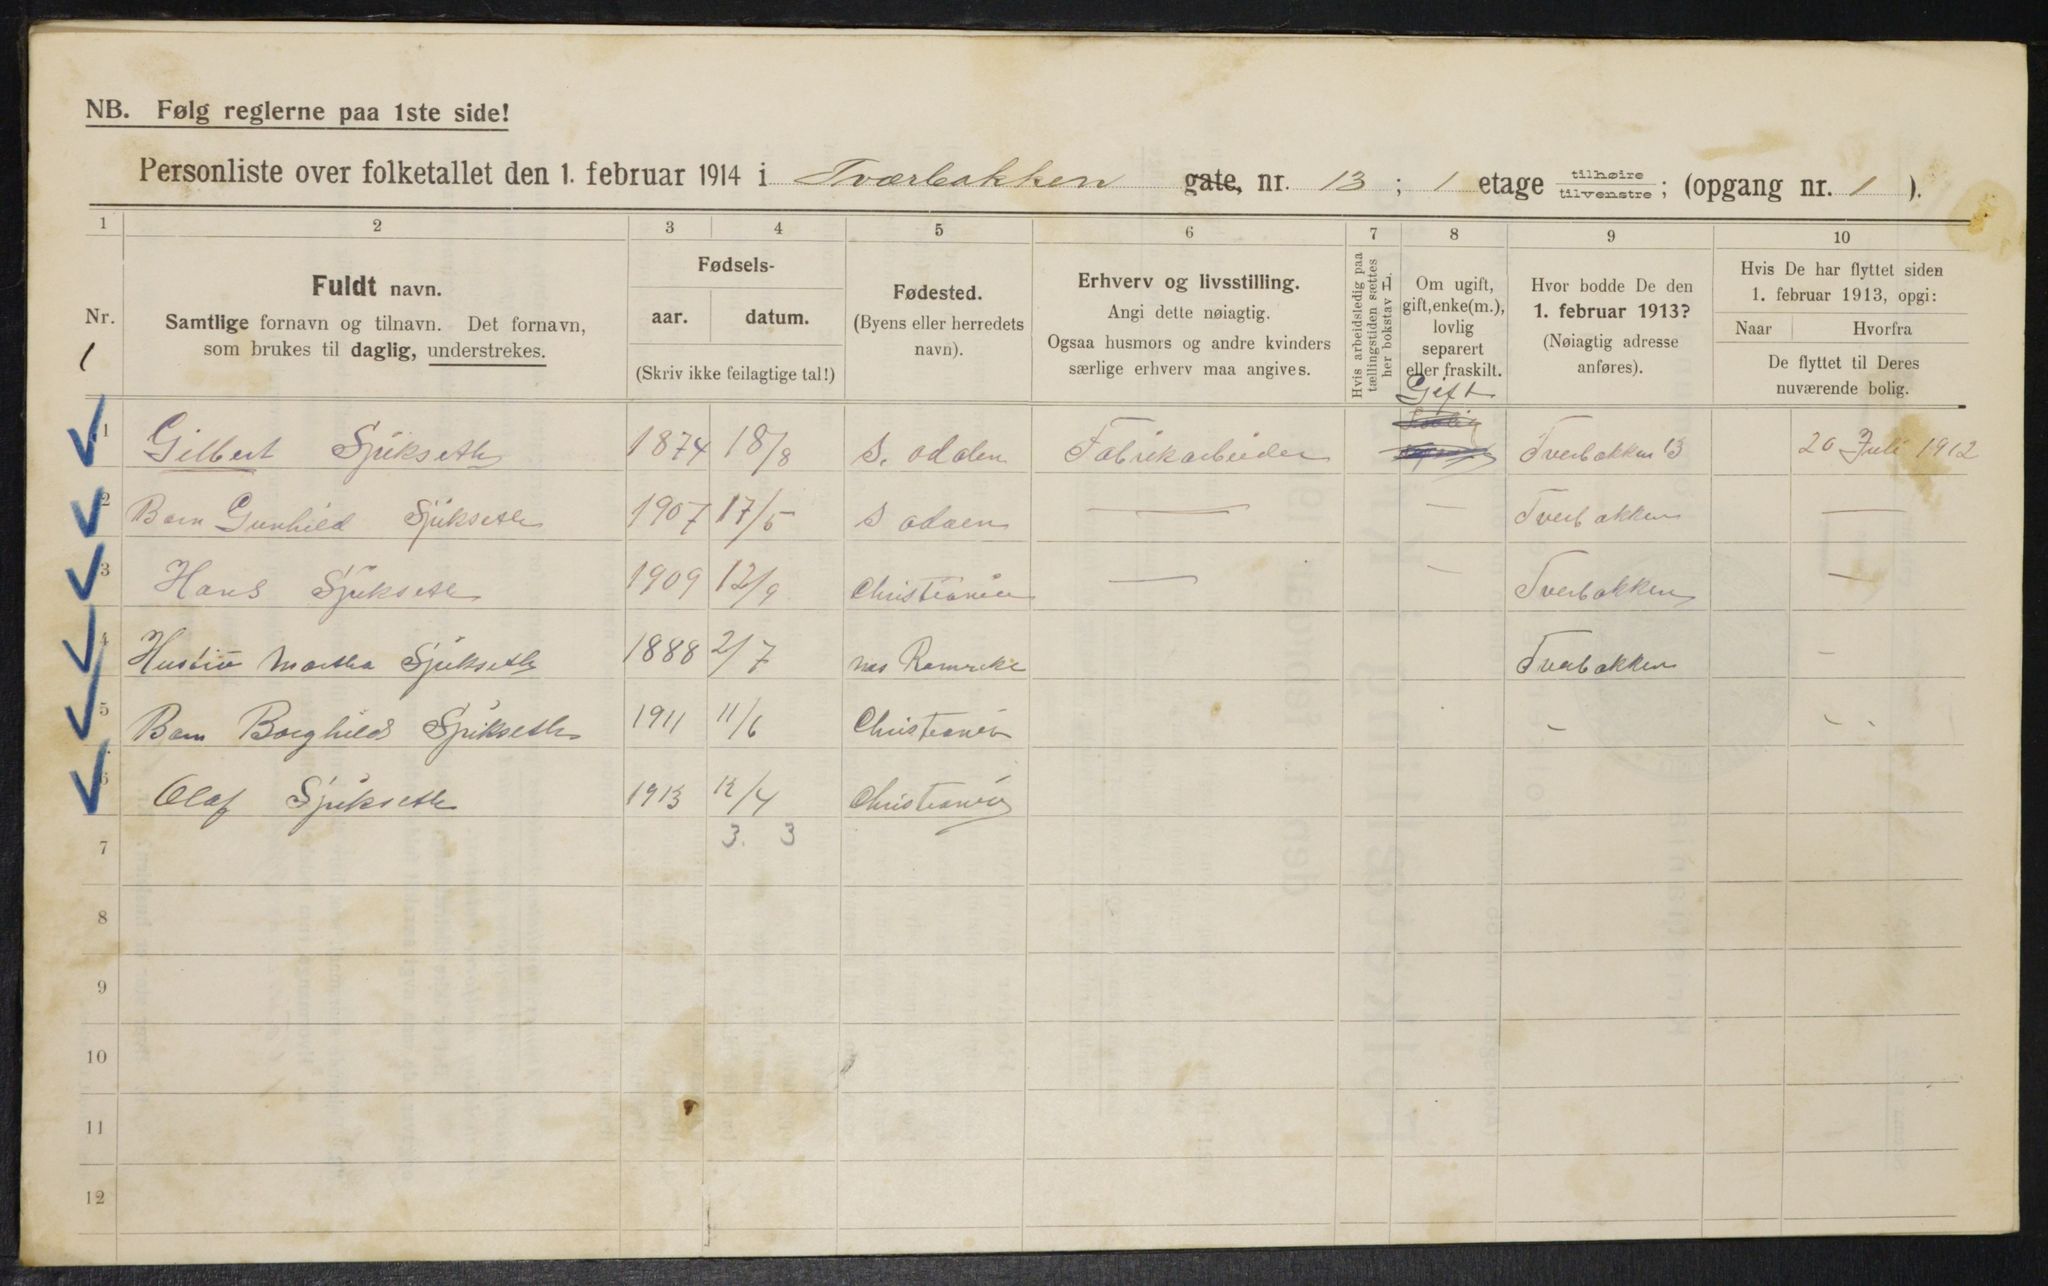 NB. Følg reglerne paa 1ste side!
Personliste over folketallet den 1. februar 1914 i Tværbakken gate, nr. 13 ; 1 etage tilhøire tilvenstre ; (opgang nr. 1 ).
1 2 3 4 5 6 7 8 9 10
Nr.
1
Fuldt navn.
Samtlige fornavn og tilnavn. Det fornavn,
som brukes til daglig, understrekes.
Fødsels-
aar. datum.
(Skriv ikke feilagtige tal!)
Fødested.
(Byens eller herredets
navn).
Erhverv og livsstilling.
Angi dette nøiagtig.
Ogsaa husmors og andre kvinders
særlige erhverv maa angives.
Hvis arbeidsledig paa
tællingstiden sættes
her bokstav L.
Om ugift,
gift, enke(m.),
lovlig
separert
eller fraskilt.
Hvor bodde De den
1. februar 1913?
(Nøiagtig adresse
anføres).
Hvis De har flyttet siden
1. februar 1913, opgi:
Naar Hvorfra
De flyttet til Deres
nuværende bolig.
1 Gilbert Sjükseth 1874 18/8 S. odalen Fabrikarbeider Gift Tverbakken 13 20 Juli 1912
2 Barn Gunhild Sjükseth 1907 17/5 S odalen — — Tverbakken —
3 Hans Sjükseth 1909 12/9 Christiania — — Tverbakken —
4 Hustru Martha Sjükseth 1888 2/7 nes Romerike Tverbakken -
5 Barn Borghild Sjükseth 1911 11/6 Christiania - -
6 Olaf Sjükseth 1913 12/4 Christiania
7 3. 3
8
9
10
11
12